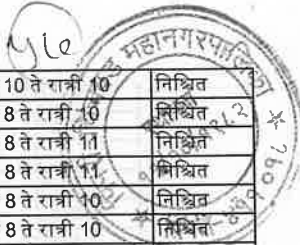 महानगरपालिका
10 ते रात्री 10 निश्चित
8 ते रात्री 10 निश्चित
8 ते रात्री 11 निश्चित
8 ते रात्री 11 निश्चित
8 ते रात्री 10 निश्चित
8 ते रात्री 10 निश्चित